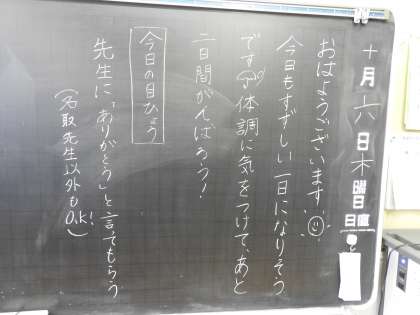 十月六日木曜日
日直
おはようございます
今日もすずしい一日になりそう
です 体調に気をつけて、あと
二日間がんばろう!
今日の目ひょう
先生に「ありがとう」と言ってもらう
(名取先生以外もO.K!)